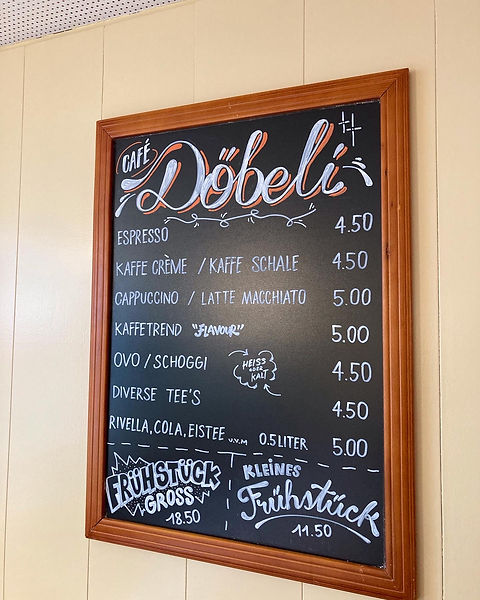 CAFÉ
Döbeli
ESPRESSO 4.50
KAFFE CRÈME / KAFFE SCHALE 4.50
CAPPUCCINO / LATTE MACCHIATO 5.00
KAFFETREND "FLAVOUR" 5.00
OVO / SCHOGGI HEISS ODER KALT 4.50
DIVERSE TEE'S 4.50
RIVELLA, COLA, EISTEE u.v.m 0.5 LITER 5.00
FRÜHSTÜCK
GROSS
18.50
KLEINES
Frühstück
11.50